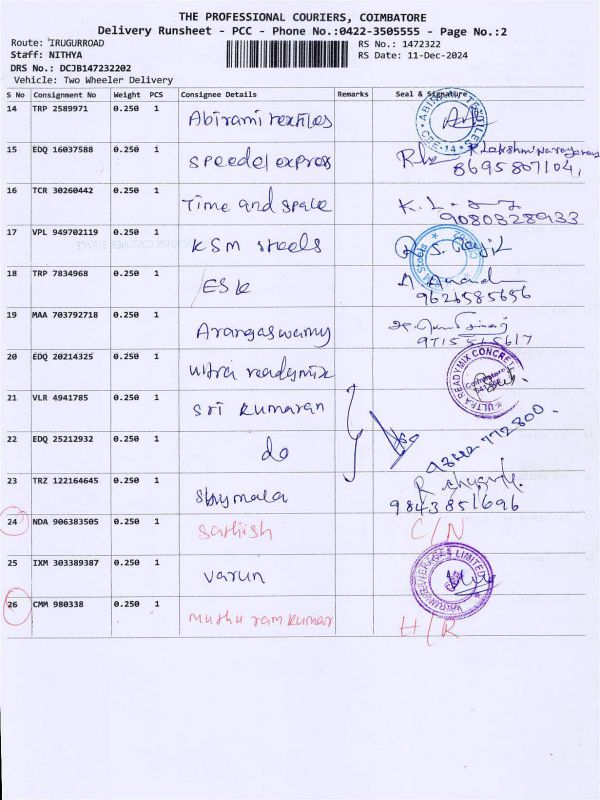 THE PROFESSIONAL COURIERS, COIMBATORE
Delivery Runsheet - PCC - Phone No.:0422-3505555 - Page No.:2
Route: IRUGURROAD RS No.: 1472322
Staff: NITHYA RS Date: 11-Dec-2024
DRS No.: DCJB147232202
Vehicle: Two Wheeler Delivery
S No Consignment No Weight PCS Consignee Details Remarks Seal & Signature
14 TRP 2589971 0.250 1 Abirami textiles
15 EDQ 16037588 0.250 1 speedel express
8695807104,
16 TCR 30260442 0.250 1 Time and space K. L.
9080328933
17 VPL 949702119 0.250 1 KSM steels
18 TRP 7834968 0.250 1 ESK Anand
9626585656
19 MAA 703792718 0.250 1 Arangaswamy
20 EDQ 20214325 0.250 1 ultra readymix
ULTRA READYMIX CONCRETE
Coimbatore
21 VLR 4941785 0.250 1 sri kumaran
22 EDQ 25212932 0.250 1 do
772800
23 TRZ 122164645 0.250 1 shymala R
9843851696
24 NDA 906383505 0.250 1 sathish C/N
25 IXM 303389387 0.250 1 varun
LIMITED
26 CMM 980338 0.250 1 muthu ram kumar H/R